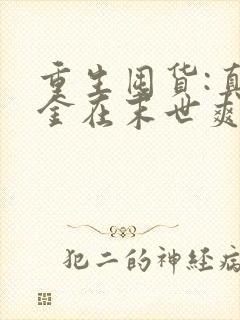 重生囤货:真
金在末世爽
犯二的神经病